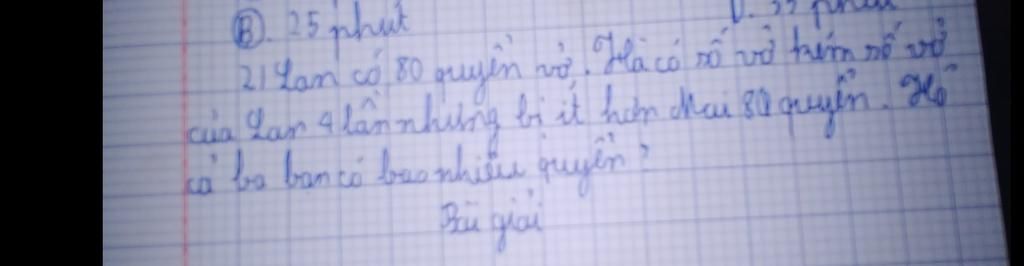 B. 25 phút
2) Lan có 80 quyển vở. Hà có số vở kém số vở
của Lan 4 lần nhưng bị ít hơn Mai 80 quyển. Hỏi
cả ba bạn có bao nhiêu quyển?
Bài giải